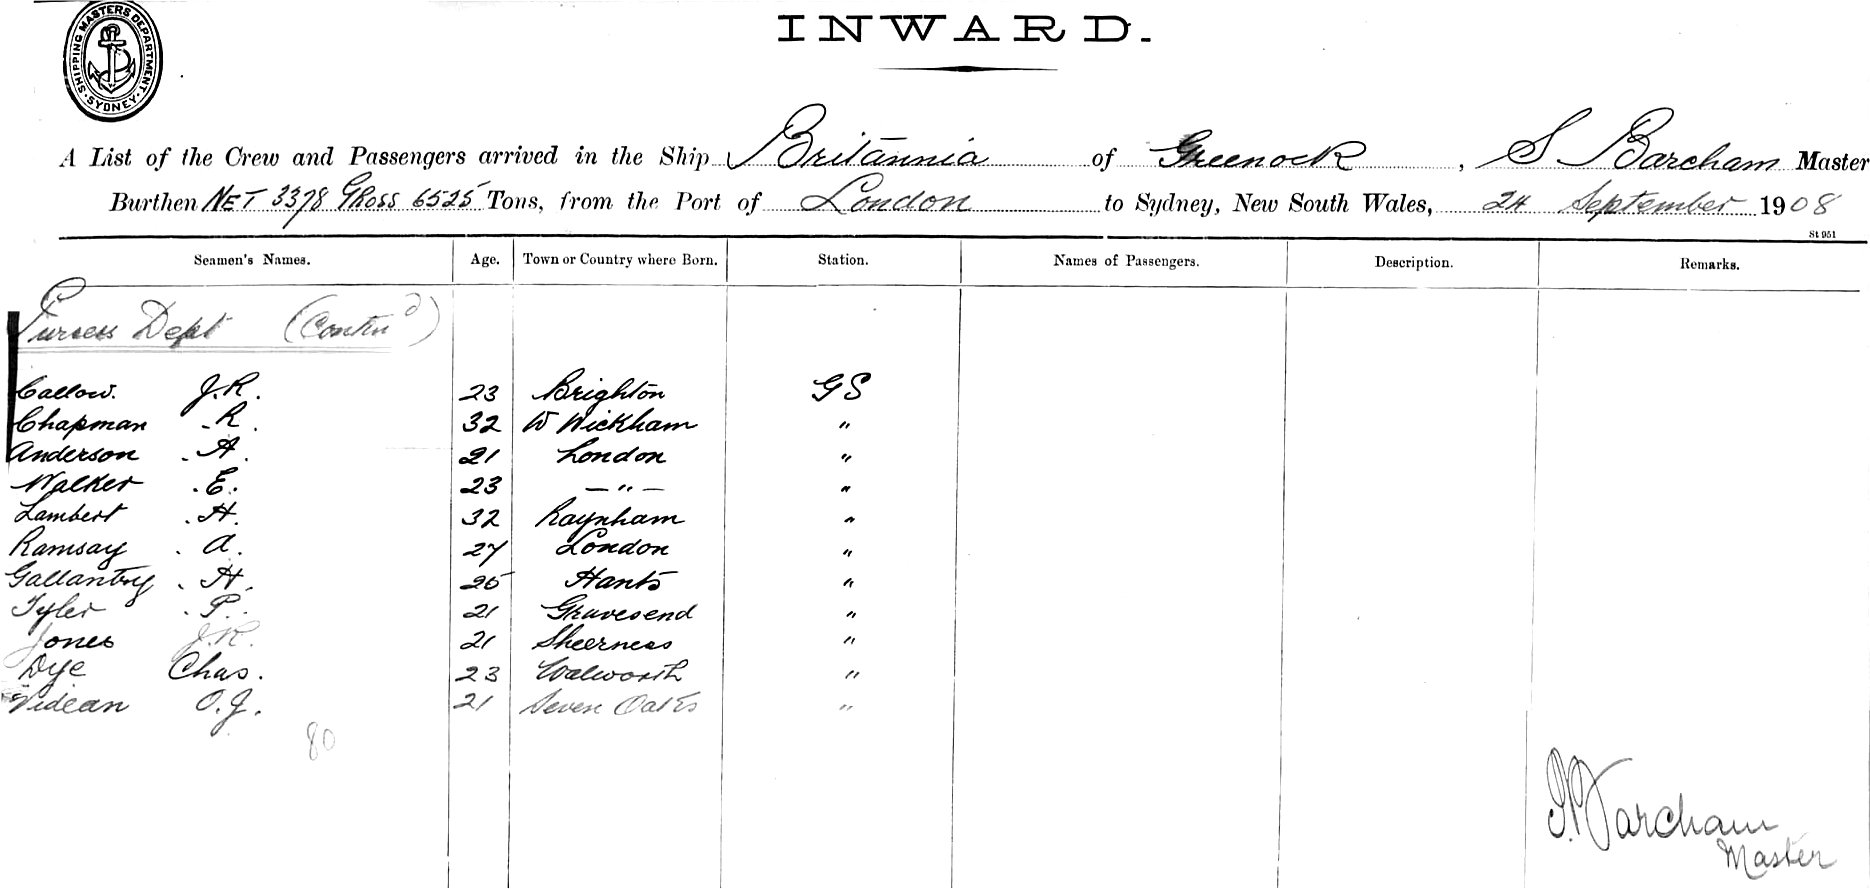 SHIPPING MASTERS DEPARTMENT. SYDNEY.
INWARD.
A List of the Crew and Passengers arrived in the Ship Britannia of Greenock, S Barcham Master
Burthen NET 3378 GROSS 6525 Tons, from the Port of London to Sydney, New South Wales, 24 September 1908
St 951
Seamen's Names. Age. Town or Country where Born. Station. Names of Passengers. Description. Remarks.
Pursers Dept (Contnd)
Callow. J.R. 23 Brighton GS
Chapman R. 32 W Wickham "
Anderson A. 21 London "
Walker E. 23 — " — "
Lambert H. 32 Raynham "
Ramsay A. 27 London "
Gallantry H. 25 Hants "
Tyler P. 21 Gravesend "
Jones J.R. 21 Sheerness "
Dye Chas. 23 Walworth "
Videan O.J. 21 Seven Oaks "
80
Barcham
Master